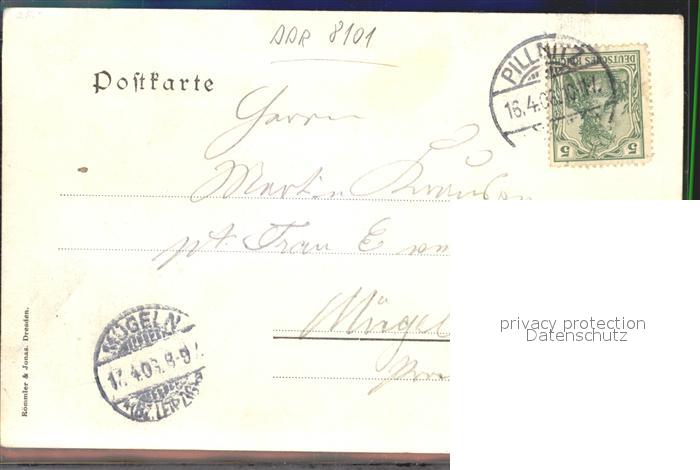 DDR 8101
Postkarte
PILLNITZ
16.4.06
DEUTSCHES REICH
5 5
Herrn
Martin
Frau E
Mügel
MÜGELN
17.4.06.8-9V.
BZ. LEIPZIG
Römmler & Jonas, Dresden.
privacy protection
Datenschutz